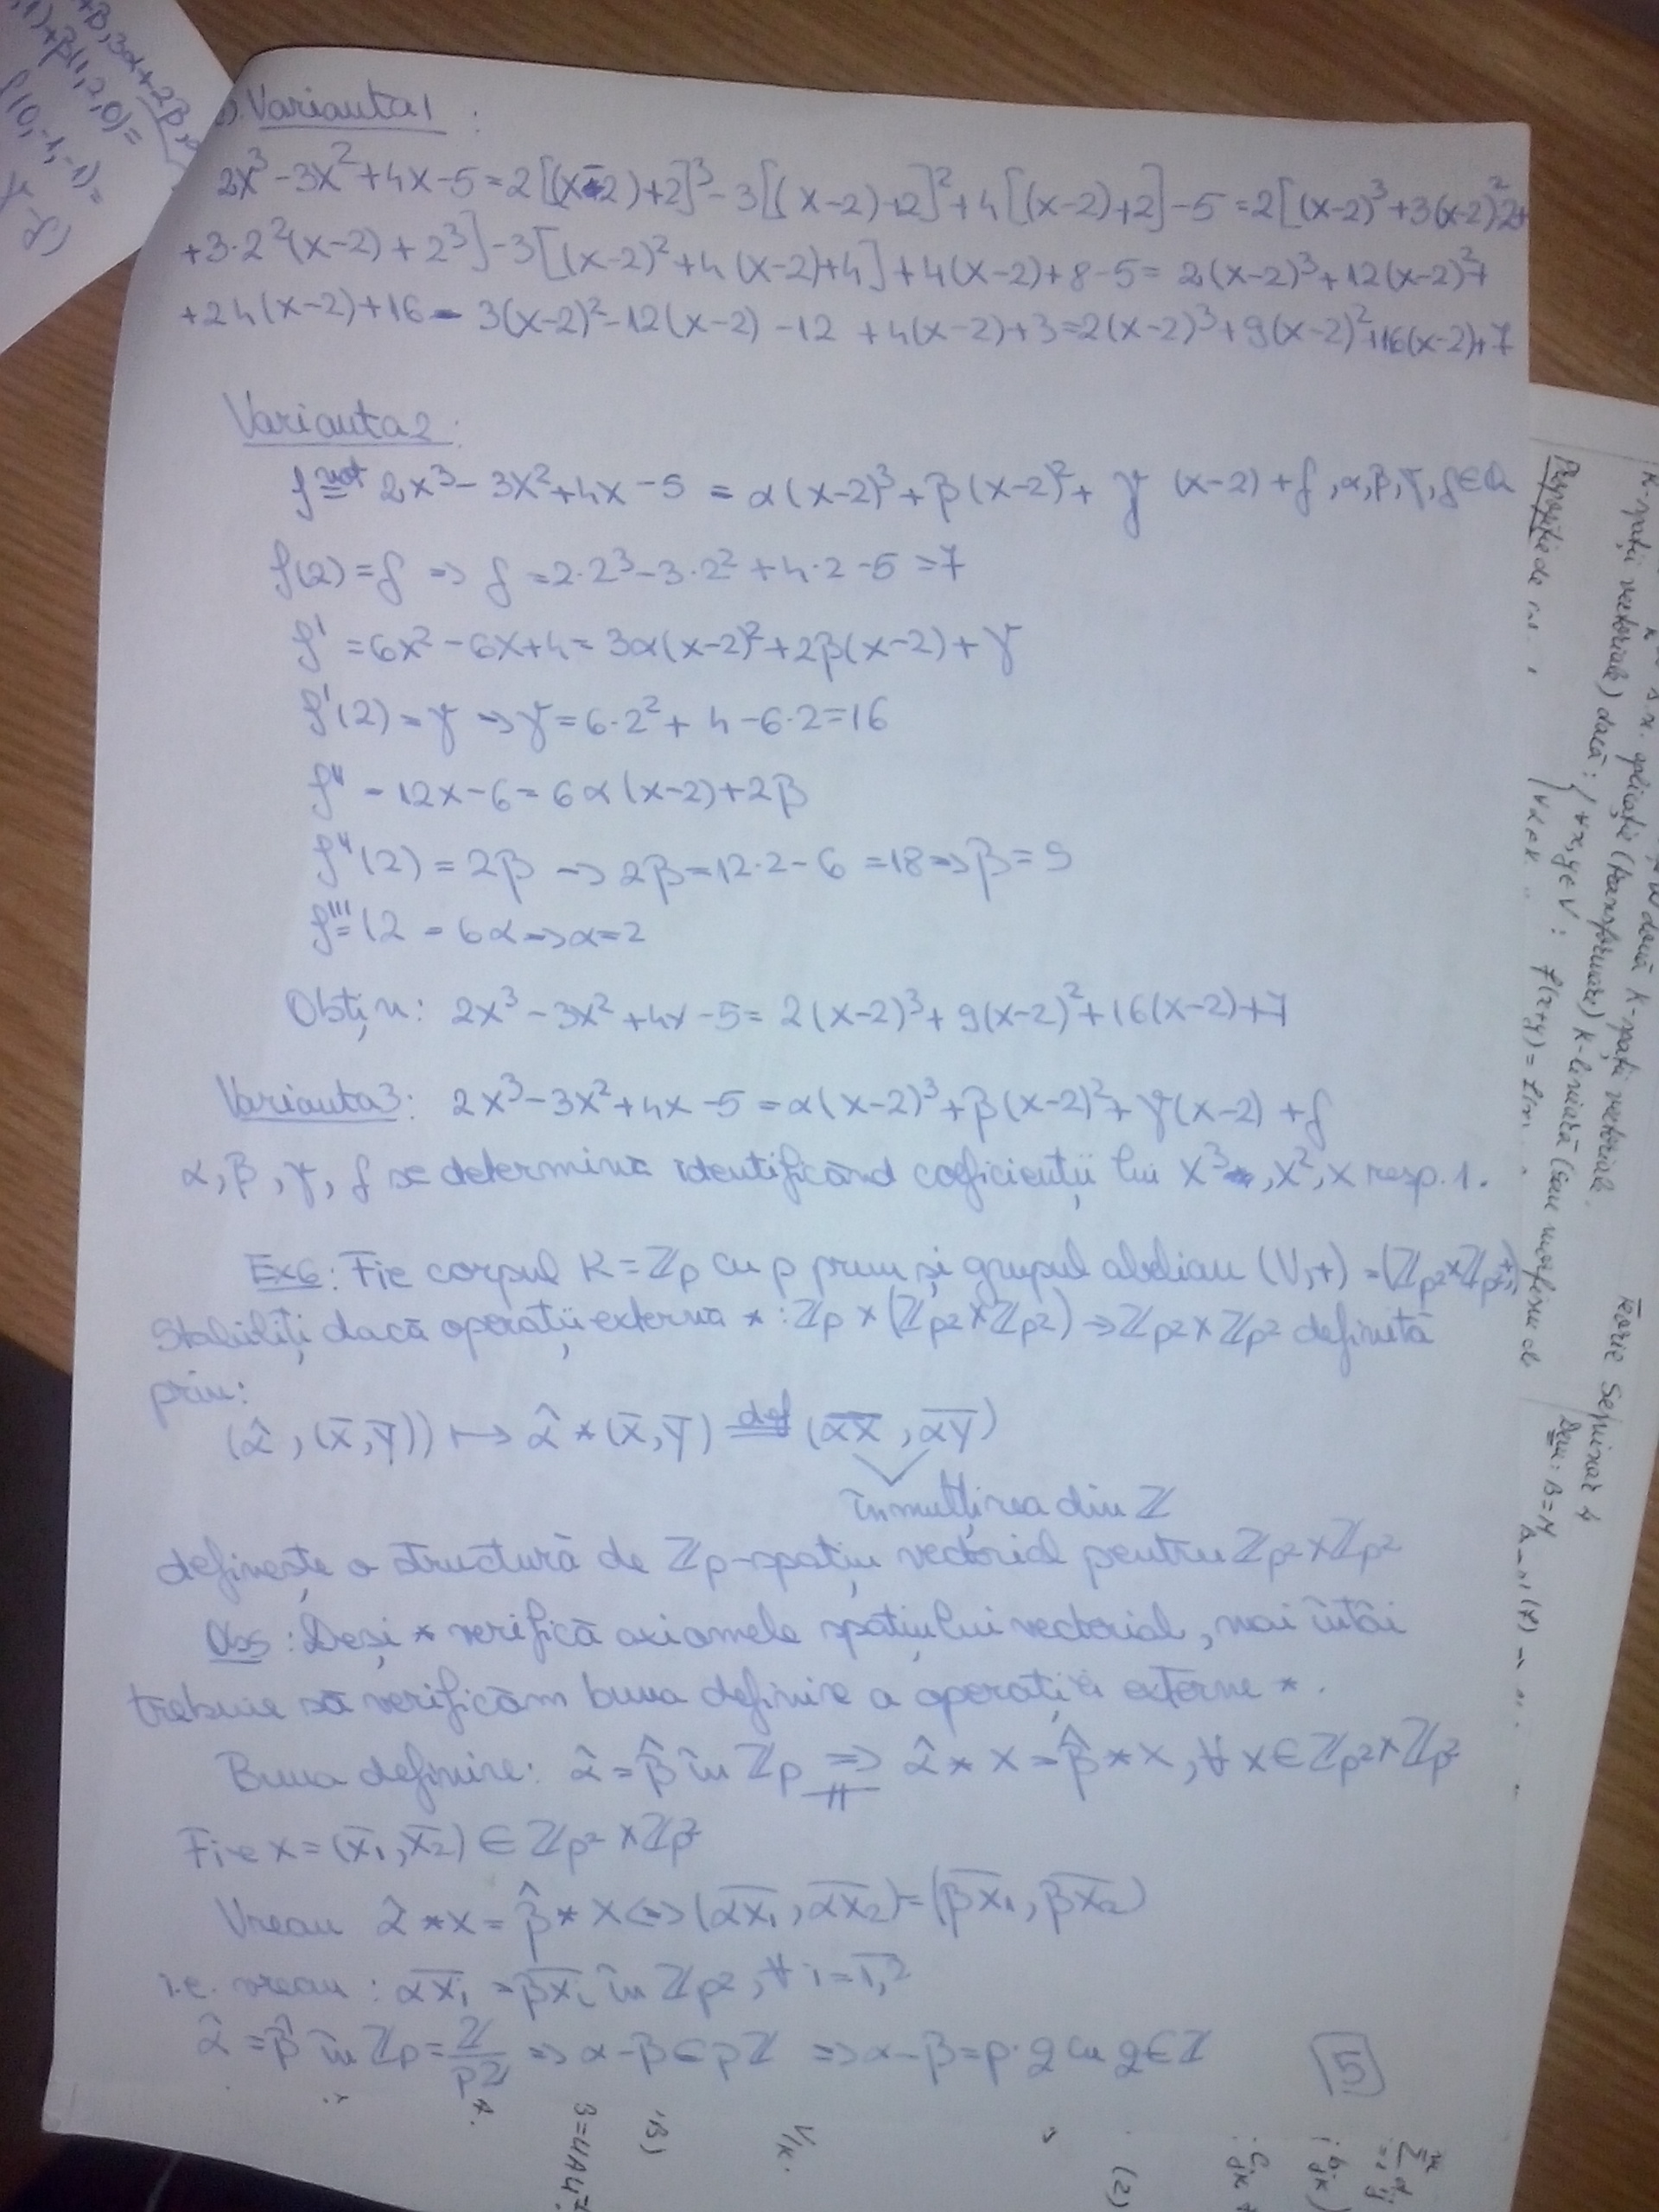 Varianta1 :
2x³-3x²+4x-5=2[(x-2)+2]³-3[(x-2)+2]²+4[(x-2)+2]-5=2[(x-2)³+3(x-2)²2+
+3·2²(x-2)+2³]-3[(x-2)²+4(x-2)+4]+4(x-2)+8-5= 2(x-2)³+12(x-2)²+
+24(x-2)+16-3(x-2)²-12(x-2)-12+4(x-2)+3=2(x-2)³+9(x-2)²+16(x-2)+7
Varianta2:
f not= 2x³-3x²+4x-5 = α(x-2)³+β(x-2)²+ γ (x-2)+δ, α,β,γ,δ∈
f(2)=δ => δ=2·2³-3·2²+4·2-5=7
f' =6x²-6x+4=3α(x-2)²+2β(x-2)+γ
f'(2)=γ => γ=6·2²+4-6·2=16
f'' = 12x-6=6α(x-2)+2β
f''(2)=2β => 2β=12·2-6=18=>β=9
f'''=12=6α=>α=2
Obțin: 2x³-3x²+4x-5=2(x-2)³+9(x-2)²+16(x-2)+7
Varianta3: 2x³-3x²+4x-5=α(x-2)³+β(x-2)²+γ(x-2)+δ
α,β,γ,δ se determină identificând coeficienții lui x³,x²,x resp.1.
Ex6: Fie corpul K=ℤp cu p prim și grupul abelian (V,+)=(ℤp²×ℤp²,+)
Stabiliți dacă operații externă *:ℤp×(ℤp²×ℤp²)→ℤp²×ℤp² definită
prin:
(α̂,(x̄,ȳ)) ↦ α̂*(x̄,ȳ) def= (α̅x̅, α̅y̅)
înmulțirea din ℤ
definește o structură de ℤp-spațiu vectorial pentru ℤp²×ℤp²
Obs: Deși * verifică axiomele spațiului vectorial, mai întâi
trebuie să verificăm buna definire a operației externe *.
Buna definire: α̂=β̂ în ℤp => α̂*x=β̂*x, ∀x∈ℤp²×ℤp²
Fie x=(x̄₁,x̄₂)∈ℤp²×ℤp²
Vreau α̂*x=β̂*x<=>(α̅x̅₁,α̅x̅₂)=(β̅x̅₁,β̅x̅₂)
i.e. vreau: α̅x̅ᵢ=β̅x̅ᵢ în ℤp², ∀i=1̅,̅2̅
α̂=β̂ în ℤp=ℤ/pℤ => α-β∈pℤ => α-β=p·q cu q∈ℤ
5
K-spații vectoriale) dacă: { ∀x,y∈V: f(x+y)=
aplicație (transformare) K-liniară (sau morfism de
două K-spații vectoriale
Teorie Seminar 4
Dem: B=M
(2)